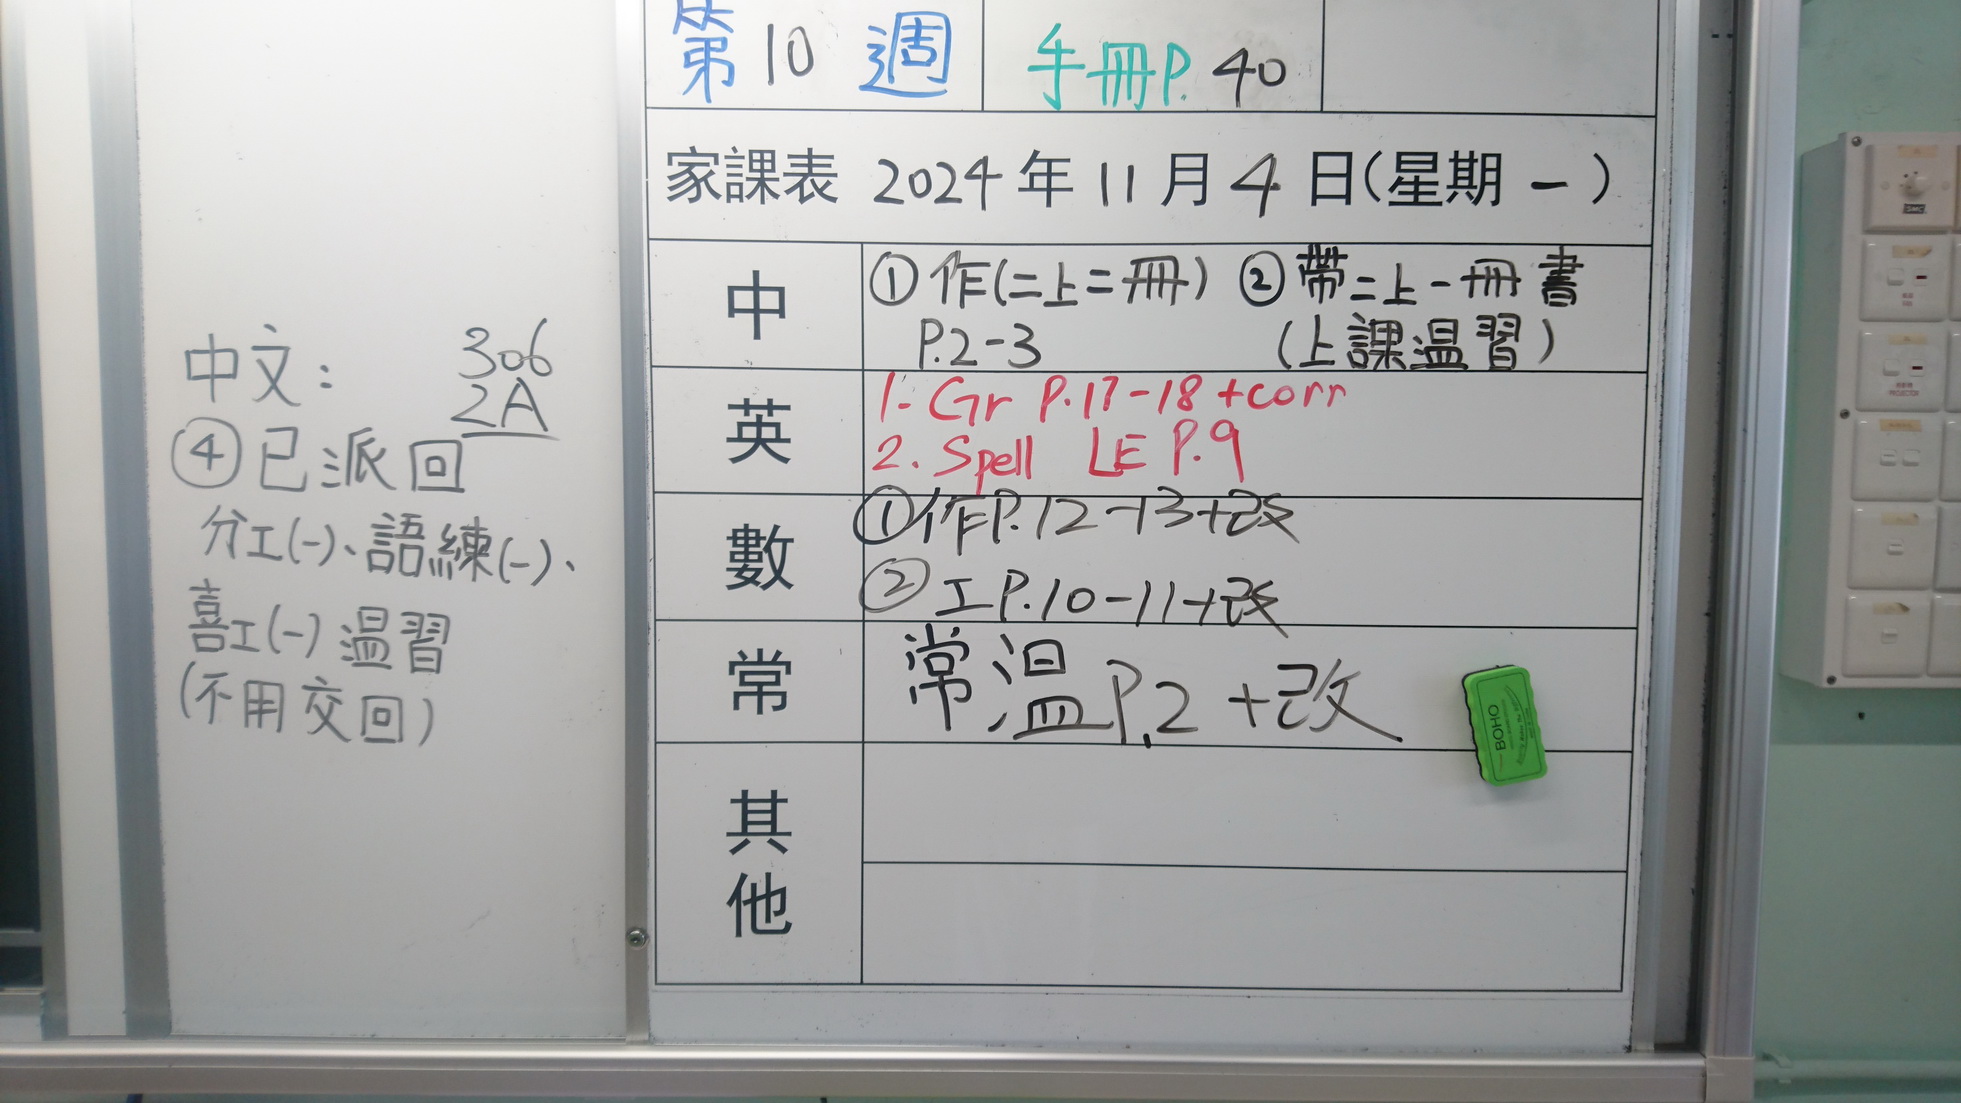 第10週
手冊P.40
家課表 2024年11月4日(星期一)
中
①作(二上二冊) ②帶二上一冊書
P.2-3 (上課温習)
英
1. Gr P.17-18+corr
2. Spell LE P.9
數
①作P.12-13+改
②工P.10-11+改
常
常温P.2+改
其他
中文: 306
2A
④已派回
分工(一)、語練(一)、
喜工(一)温習
(不用交回)
BOHO